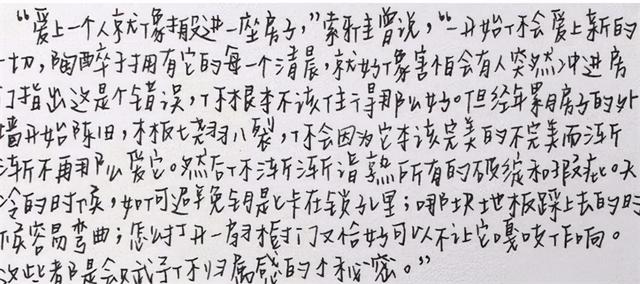 “爱上一个人就像搬进一座房子,”索雅曾说,“一开始你会爱上新的
一切,陶醉于拥有它的每一个清晨,就好像害怕会有人突然冲进房
门指出这是个错误,你根本不该住得那么好。但经年累月房子的外
墙开始陈旧,木板七翘八裂,你会因为它本该完美的不完美而渐
渐不再那么爱它。然后你渐渐谙熟所有的破绽和瑕疵。天
冷的时候,如何避免钥匙卡在锁孔里;哪块地板踩上去的时
候容易弯曲;怎么打开一扇橱门又恰好可以不让它嘎吱作响。
这些都是会赋予你归属感的小秘密。”